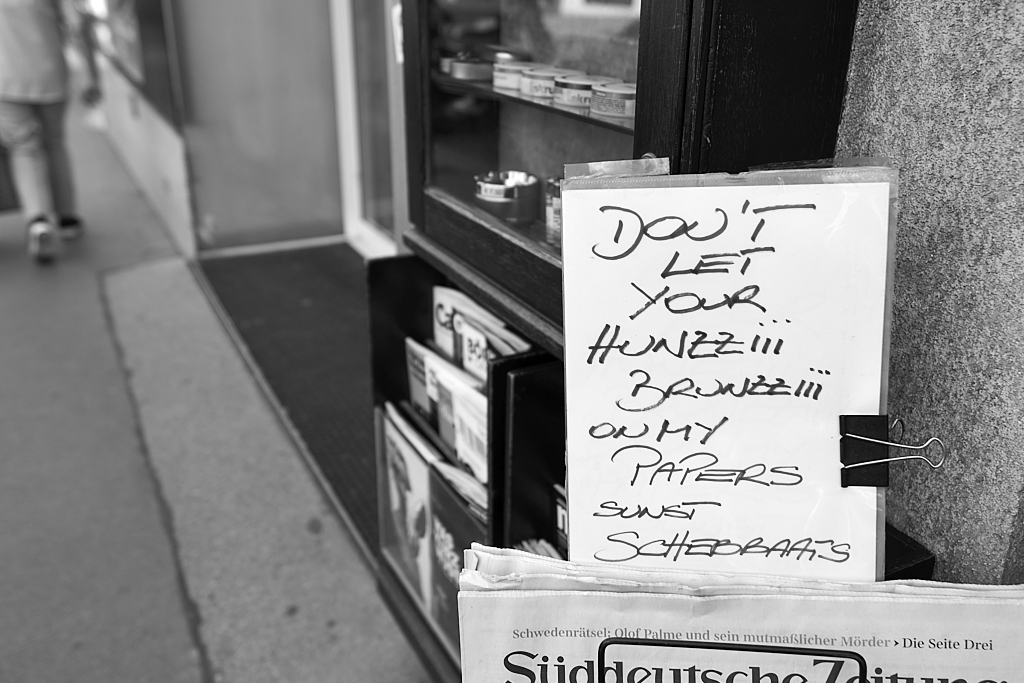 DON'T
LET
YOUR
HUNZZiii
BRUNZZiii
ON MY
PAPERS
SUNST
SCHEBBRAATS
Schwedenrätsel: Olof Palme und sein mutmaßlicher Mörder › Die Seite Drei
Süddeutsche Zeitung